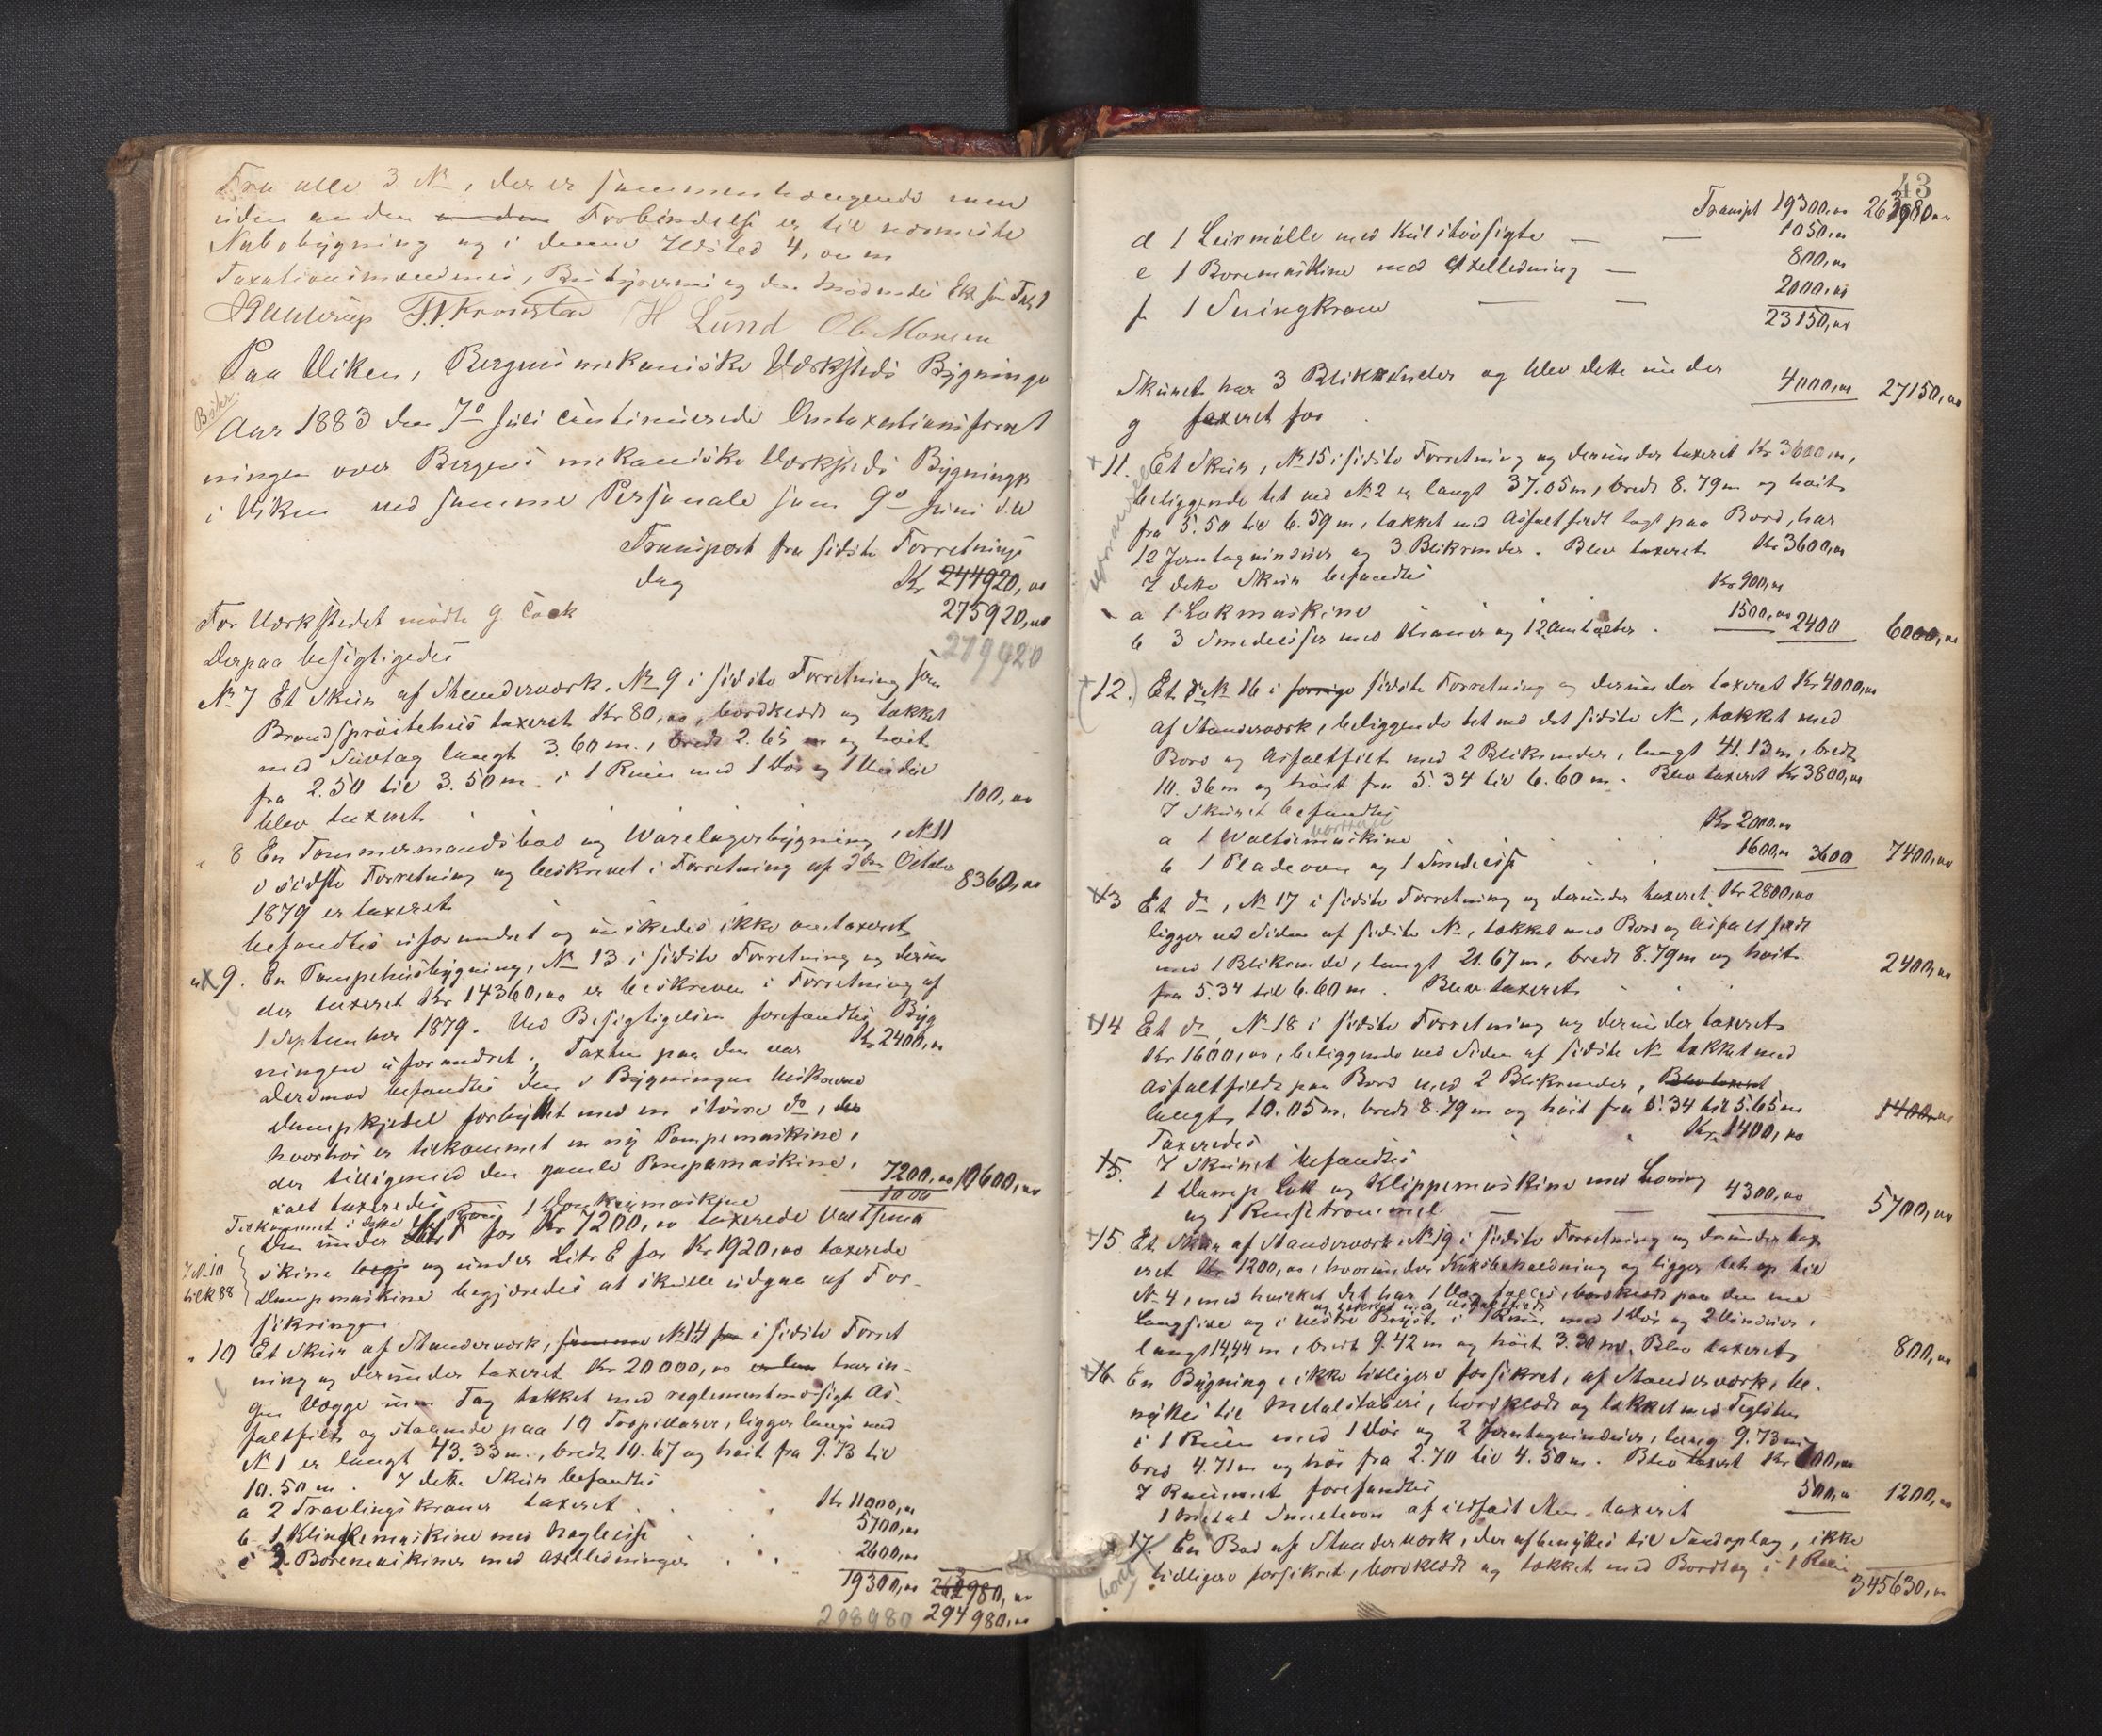 Fra alle 3 No, der er sammenhængende men
uden anden Forbindelse er til nærmeste
Nabobygning og i denne Ildsted 4,00 m
Taxationsmændenes, Bestyrerens og den mødendes
H Lund Ole Monsen
Paa Viken, Bergens mekaniske Værksteds Bygninge
Aar 1883 den 7de Juli continuerede Omtaxationsforret
ningen over Bergens mekaniske Værksteds Bygninger
i Viken ved samme Personale som 9de Juni d.A
Transport fra sidste Forretnings
dag Kr 244920,00
275920,00
279920
For Værkstedet mødte G Cook
Derpaa besigtigedes
No 7 Et Skur af Stænderværk, No 9 i sidste Forretning som
Brandsprøitehus taxeret Kr 80,00, bordklædt og tækket
med Sutag langt 3.60 m., bredt 2.65 m og høit
fra 2.50 til 3.50 m. i 1 Rum med 1 Dør og 1 Vindue
blev taxeret 100,00
8 En Tømmermandsbod og Varelagerbygning, No 11
i sidste Forretning og beskrevet i Forretning af 2den October
1879 er taxeret 8360,00
befandtes uforandret og ønskedes ikke omtaxeret
9. En Pumpehusbygning, No 13 i sidste Forretning og derun
der taxeret Kr 14360,00 er beskreven i Forretning af
1 September 1879. Ved Besigtigelsen forefandtes Byg
ningen uforandret; Taxten paa den var Kr 2400,00
derimod befandtes den i Bygningen
Dampkjedel forbyttet med en større do,
hvorhos er tilkommet en ny Pumpemaskine,
der tilligemed den gamle Pumpemaskine,
i alt taxeredes 7200,00 10600,00
Tilkommet i dette Rum 1 Donkeymaskine 1000
Den under Litr for Kr 7200,00 taxerede Valsema
skine og under Litr E for Kr 1920,00 taxerede
Dampmaskine begjæredes at skulle udgaa af For-
sikringen.
10 Et Skur af Stænderværk, No 14 i sidste Forret
ning og derunder taxeret Kr 20000,00 har in-
gen Vægge men Tag tækket med reglementmæsigt As-
faltfilt og staaende paa 10 Træpillarer, ligger langs med
No 1 er langt 43.33 m., bredt 10.67 og høit fra 9.73 til
10.50 m. I dette Skur befandtes
a 2 Travlingskraner taxeret Kr 11000,00
b 1 Klinkemaskine med Nagleesse 5700,00
c 2 Boremaskiner med Axelledninger 2600,00
19300,00 262980,00
298980 294980,00
43
Transpt 19300,00 263980,00
d 1 Leirmølle med Kulstøvsigte 1050,00
e 1 Boremaskine med Axelledning 800,00
f 1 Svingkran 2000,00
23150,00
Skuret har 3 Blikrender og blev dette under
g taxeret for 4000,00 27150,00
11. Et Skur, No 15 i sidste Forretning og derunder taxeret Kr 3600,00,
beliggende tet ved No 2 er langt 37.05 m, bredt 8.79 m og høit
fra 5.50 til 6.59 m, tækket med Asfaltfildt lagt paa Bord, har
12 Jerntagvinduer og 3 Blikrender. Blev taxeret Kr 3600,00
I dette Skur befandtes
a 1 Lokmaskine Kr 900,00
b 3 Smedeesser med Kraner og 12 Ambolter 1500,00 2400 6000,00
12. Et do No 16 i sidste Forretning og derunder taxeret Kr 4000,00
af Stænderværk, beliggende tet ved det sidste No, tækket med
Bord og Asfaltfilt med 2 Blikrender, langt 41.13 m, bredt
10.36 m og høit fra 5.34 til 6.60 m. Blev taxeret Kr 3800,00
I Skuret befandtes
a 1 Valsemaskine Kr 2000,00
b 1 Pladeovn og 1 Smedeesse 1600,00 3600 7400,00
13 Et do, No 17 i sidste Forretning og derunder taxeret Kr 2800,00
ligger ved Siden af sidste No, tækket med Bord og Asfaltfildt
med 1 Blikrende, langt 21.67 m, bredt 8.79 m og høit
fra 5.34 til 6.60 m. Blev taxeret 2400,00
14 Et do No 18 i sidste Forretning og derunder taxeret
Kr 1600,00, beliggende ved Siden af sidste No tækket med
Asfaltfildt paa Bord med 2 Blikrender, Blev taxeret
langt 10.05 m, bredt 8.79 m og høit fra 5.34 til 5.65 m
Taxeredes Kr 1400,00 1400,00
15. I Skuret befandtes
1 Damp Lok og Klippemaskine med Løvning
og 1 Rusetrommel 4300,00 5700,00
15 Et Skur af Stænderværk No 19 i sidste Forretning og derunder tax
eret Kr 1200,00, hvorunder Koksbeholdning og ligger tet op til
No 4, med hvilket det har 1 Væg fælles, bordklædt paa den ene
og tækket med Asfaltfildt
Langside og i vestre Bryst i 1 Rum med 1 Dør og 2 Vinduer,
langt 14,44 m, bredt 9.42 m og høit 3.30 m. Blev taxeret 800,00
16 En Bygning, ikke tidligere forsikret, af Stænderværk, be-
nyttes til Metalstøberi, bordklædt og tækket med Teglsten
i 1 Rum med 1 Dør og 2 Jerntagvinduer, lang 9.73 m
bred 4.71 m og høi fra 2.70 til 4.50 m. Blev taxeret Kr 700,00
I Rummet forefandtes
1 Metal Smelteovn af ildfast Sten taxeret 500,00 1200,00
17. En Bod af Stænderværk, der afbenyttes til Sandoplag, ikke
tidligere forsikret, bordklædt og tækket med Bordtag i 1 Rum
345630,00